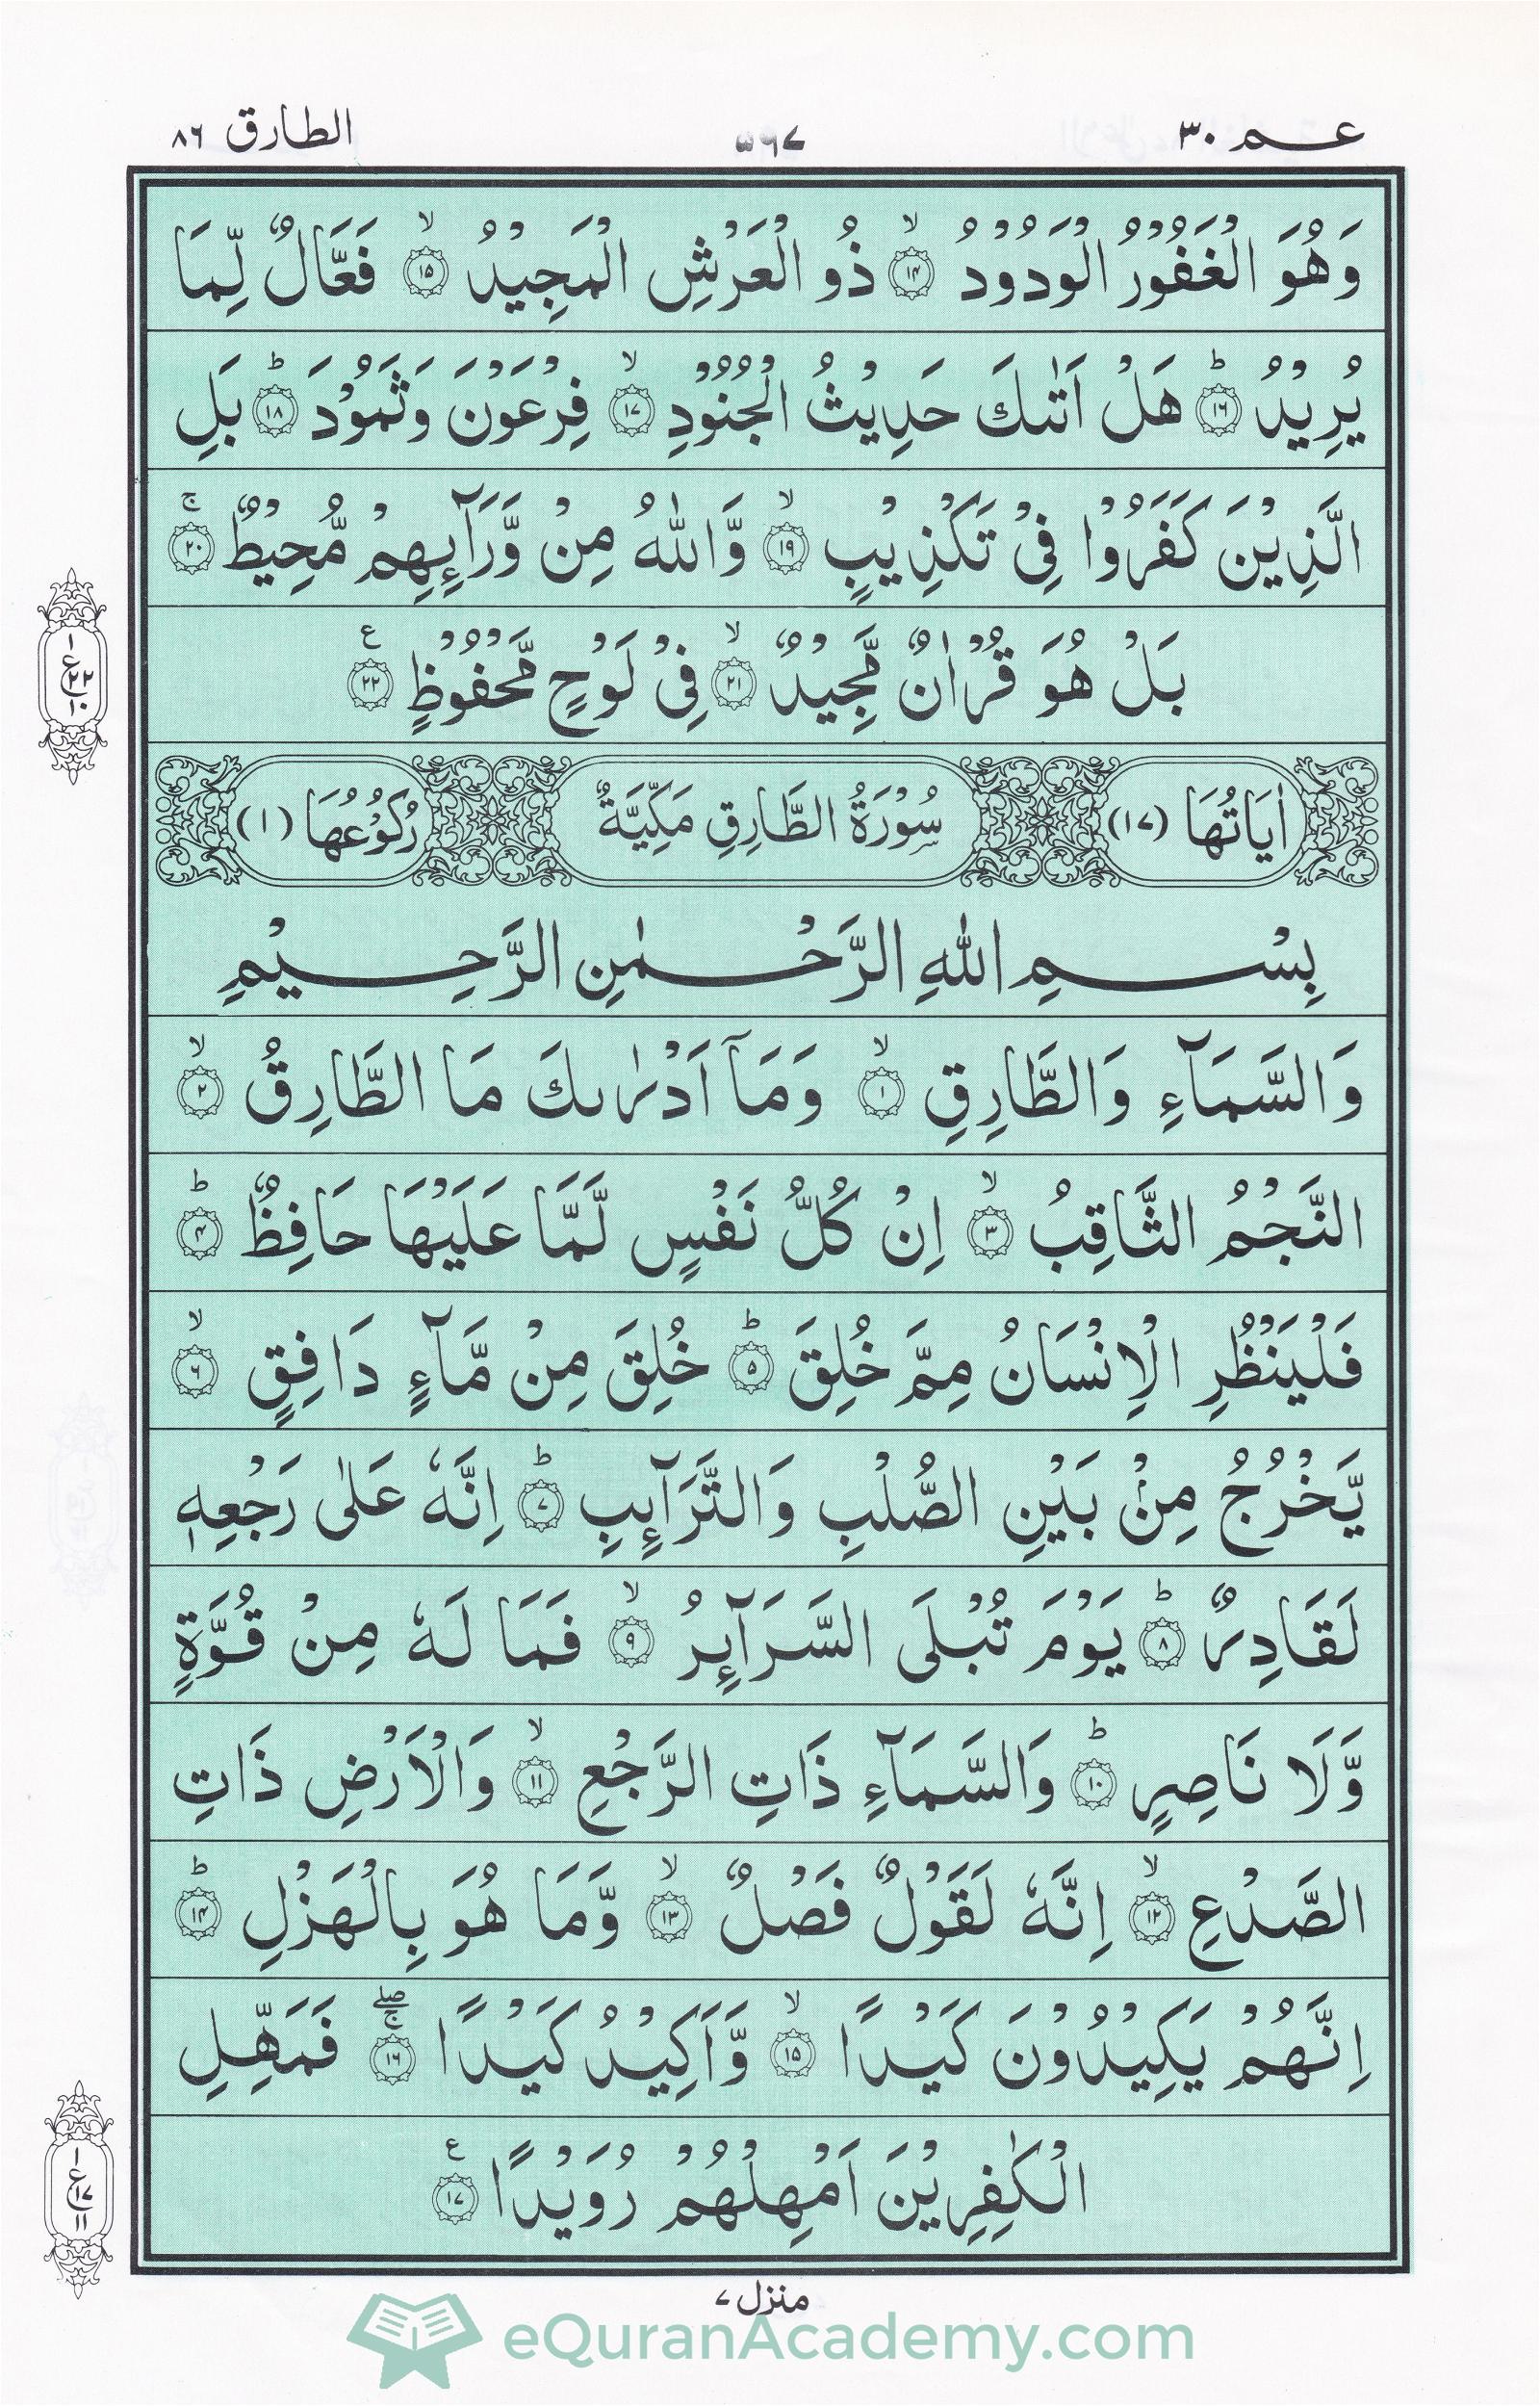 عــم ٣٠
٥٦٧
الطارق ٨٦
وَهُوَ الْغَفُوْرُ الْوَدُوْدُ ۙ﴿١٤﴾ ذُو الْعَرْشِ الْمَجِيْدُ ۙ﴿١٥﴾ فَعَّالٌ لِّمَا
يُرِيْدُ ؕ﴿١٦﴾ هَلْ اَتٰىكَ حَدِيْثُ الْجُنُوْدِ ۙ﴿١٧﴾ فِرْعَوْنَ وَثَمُوْدَ ؕ﴿١٨﴾ بَلِ
الَّذِيْنَ كَفَرُوْا فِىْ تَكْذِيْبٍ ۙ﴿١٩﴾ وَّاللّٰهُ مِنْ وَّرَآئِهِمْ مُّحِيْطٌ ۚ﴿٢٠﴾
بَلْ هُوَ قُرْاٰنٌ مَّجِيْدٌ ۙ﴿٢١﴾ فِىْ لَوْحٍ مَّحْفُوْظٍ ﴿٢٢﴾ ع
ع ١ ٢٢ ١٠
اٰيَاتُهَا (١٧) سُوْرَةُ الطَّارِقِ مَكِّيَّةٌ رُكُوْعُهَا (١)
بِسْــمِ اللّٰهِ الرَّحْــمٰنِ الرَّحِــيْمِ
وَالسَّمَآءِ وَالطَّارِقِ ۙ﴿١﴾ وَمَآ اَدْرٰىكَ مَا الطَّارِقُ ۙ﴿٢﴾
النَّجْمُ الثَّاقِبُ ۙ﴿٣﴾ اِنْ كُلُّ نَفْسٍ لَّمَّا عَلَيْهَا حَافِظٌ ؕ﴿٤﴾
فَلْيَنْظُرِ الْاِنْسَانُ مِمَّ خُلِقَ ؕ﴿٥﴾ خُلِقَ مِنْ مَّآءٍ دَافِقٍ ۙ﴿٦﴾
يَّخْرُجُ مِنْۢ بَيْنِ الصُّلْبِ وَالتَّرَآئِبِ ؕ﴿٧﴾ اِنَّهٗ عَلٰى رَجْعِهٖ
لَقَادِرٌ ؕ﴿٨﴾ يَوْمَ تُبْلَى السَّرَآئِرُ ۙ﴿٩﴾ فَمَا لَهٗ مِنْ قُوَّةٍ
وَّلَا نَاصِرٍ ؕ﴿١٠﴾ وَالسَّمَآءِ ذَاتِ الرَّجْعِ ۙ﴿١١﴾ وَالْاَرْضِ ذَاتِ
الصَّدْعِ ۙ﴿١٢﴾ اِنَّهٗ لَقَوْلٌ فَصْلٌ ۙ﴿١٣﴾ وَّمَا هُوَ بِالْهَزْلِ ؕ﴿١٤﴾
اِنَّهُمْ يَكِيْدُوْنَ كَيْدًا ۙ﴿١٥﴾ وَّاَكِيْدُ كَيْدًا ۚۖ﴿١٦﴾ فَمَهِّلِ
الْكٰفِرِيْنَ اَمْهِلْهُمْ رُوَيْدًا ﴿١٧﴾ ع
ع ١ ١٧ ١١
منزل ٧
eQuranAcademy.com